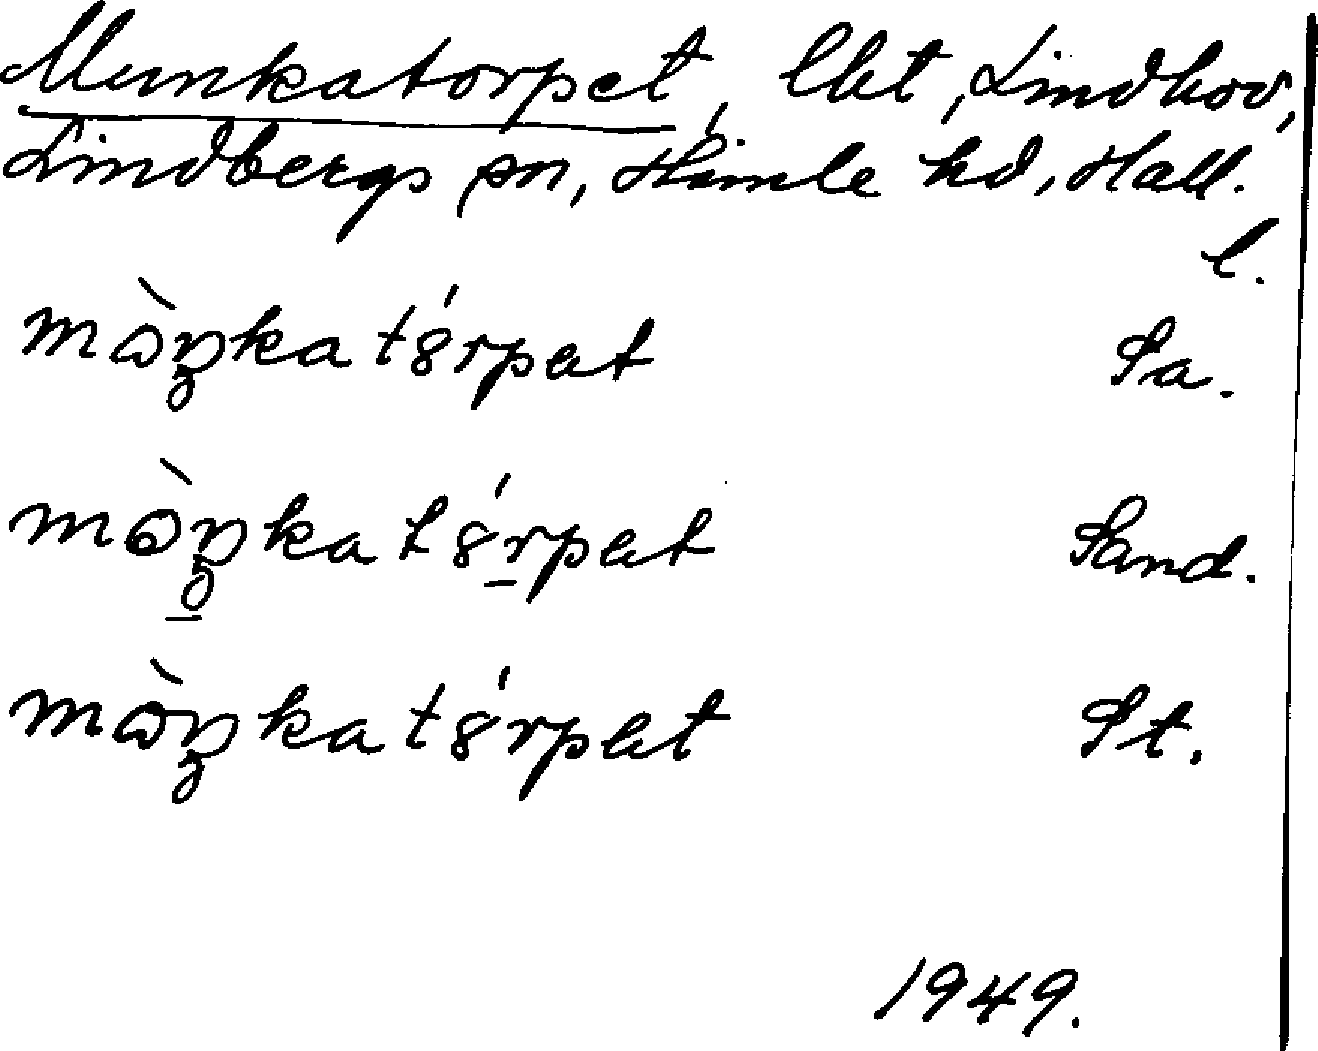 Munkatorpet, lht, Lindhov,
Lindbergs sn, Himle hd, Hall.
l.
mὼŋka tȣ́rpət Sa.
mὼŋka tȣ́rpət Sand.
mὼŋka tȣ́rpət St.
1949.